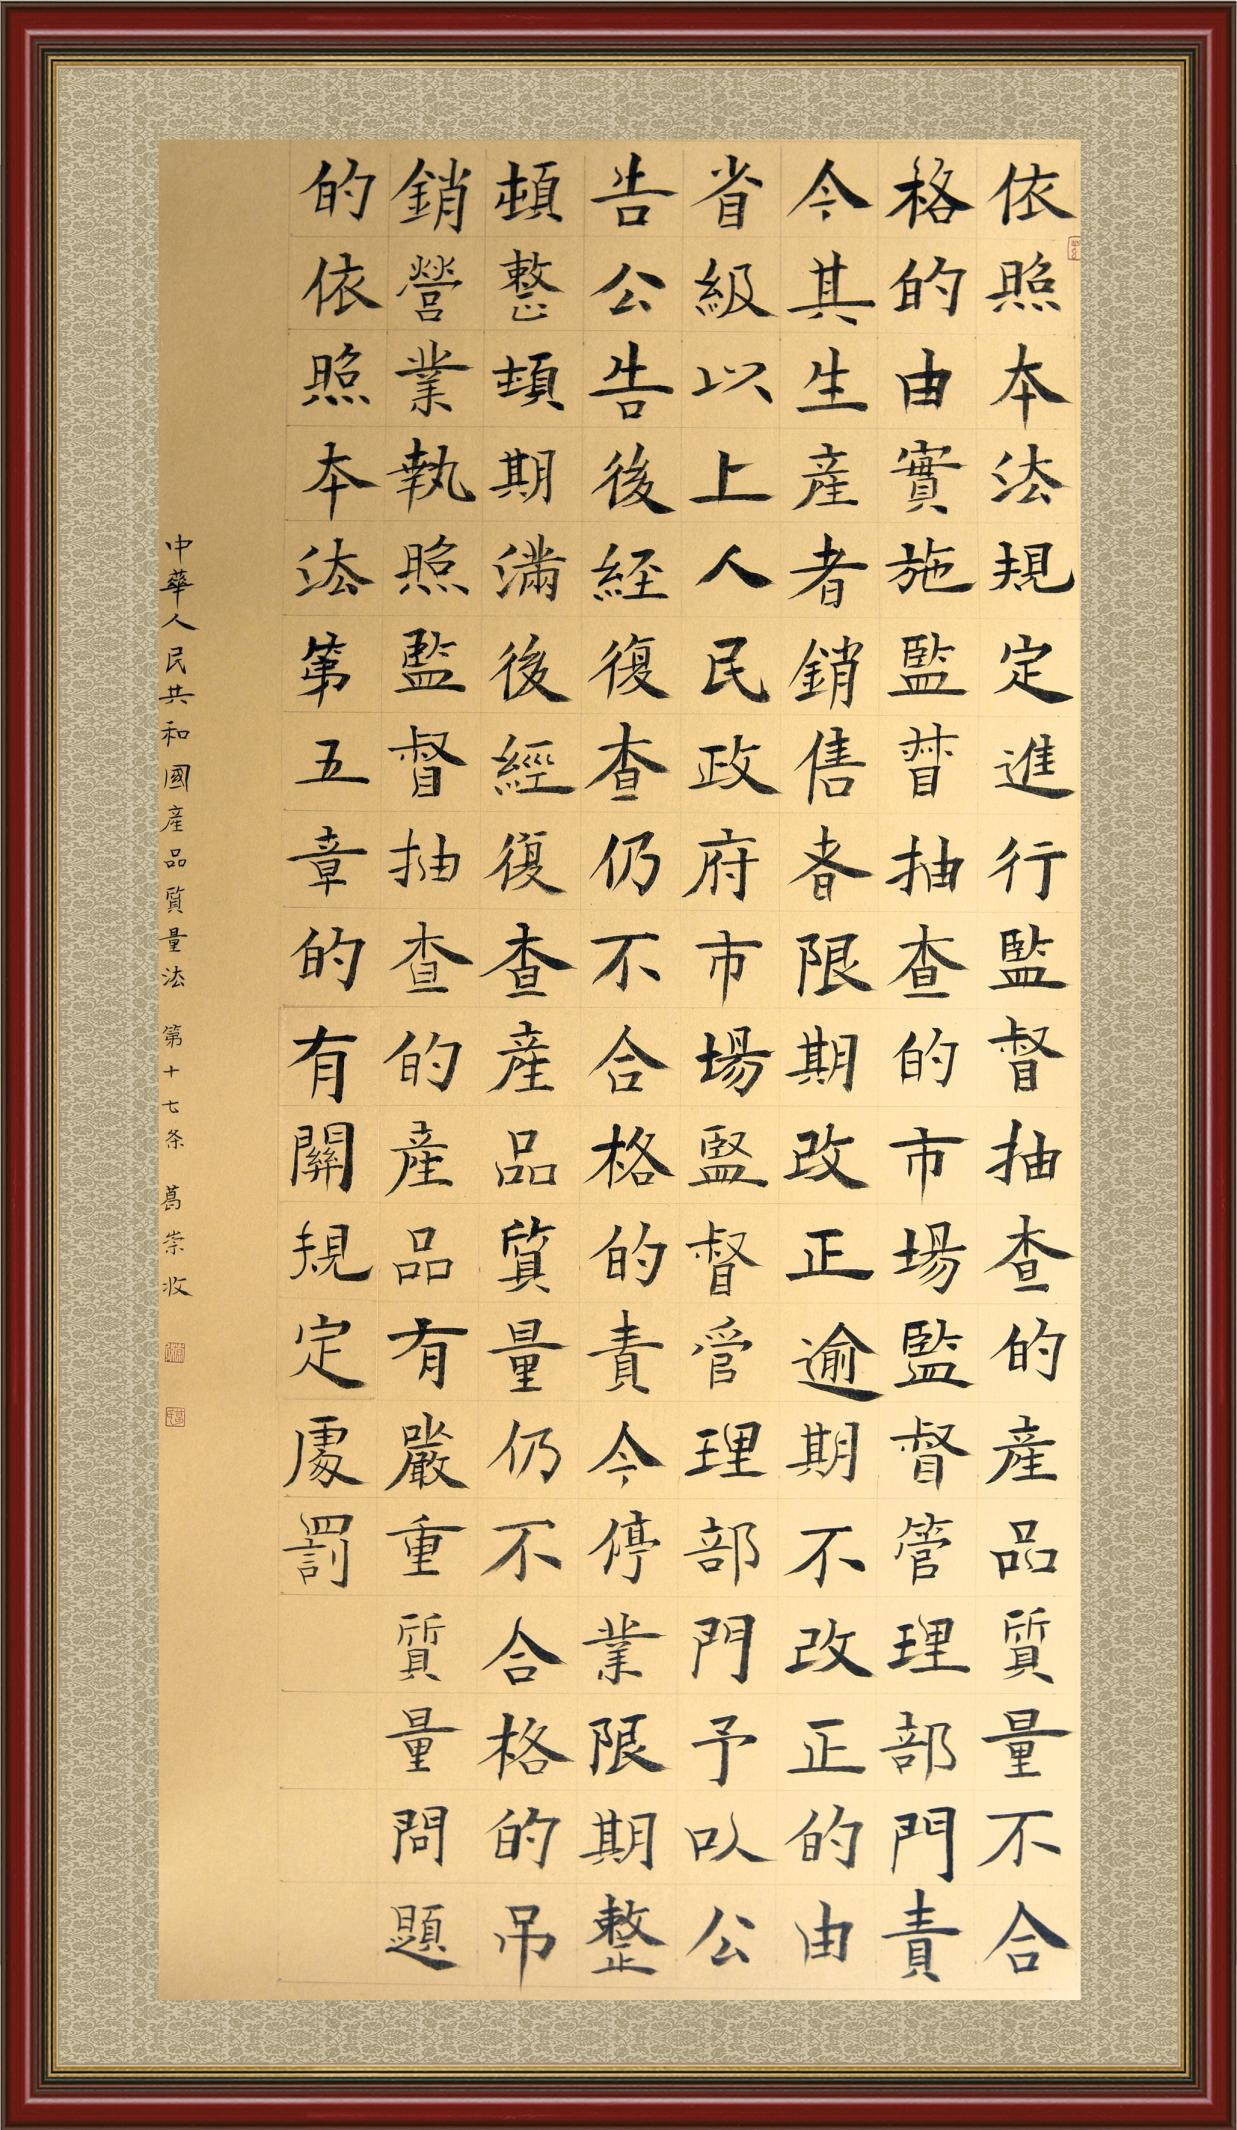 依照本法規定進行監督抽查的産品質量不合
格的由實施監督抽查的市場監督管理部門責
令其生産者銷售者限期改正逾期不改正的由
省級以上人民政府市場監督管理部門予以公
告公告後経復查仍不合格的責令停業限期整
頓整頓期滿後經復查産品質量仍不合格的吊
銷營業執照監督抽查的産品有嚴重質量問題
的依照本法第五章的有關規定處罰
中華人民共和國産品質量法 第十七条 葛崇收